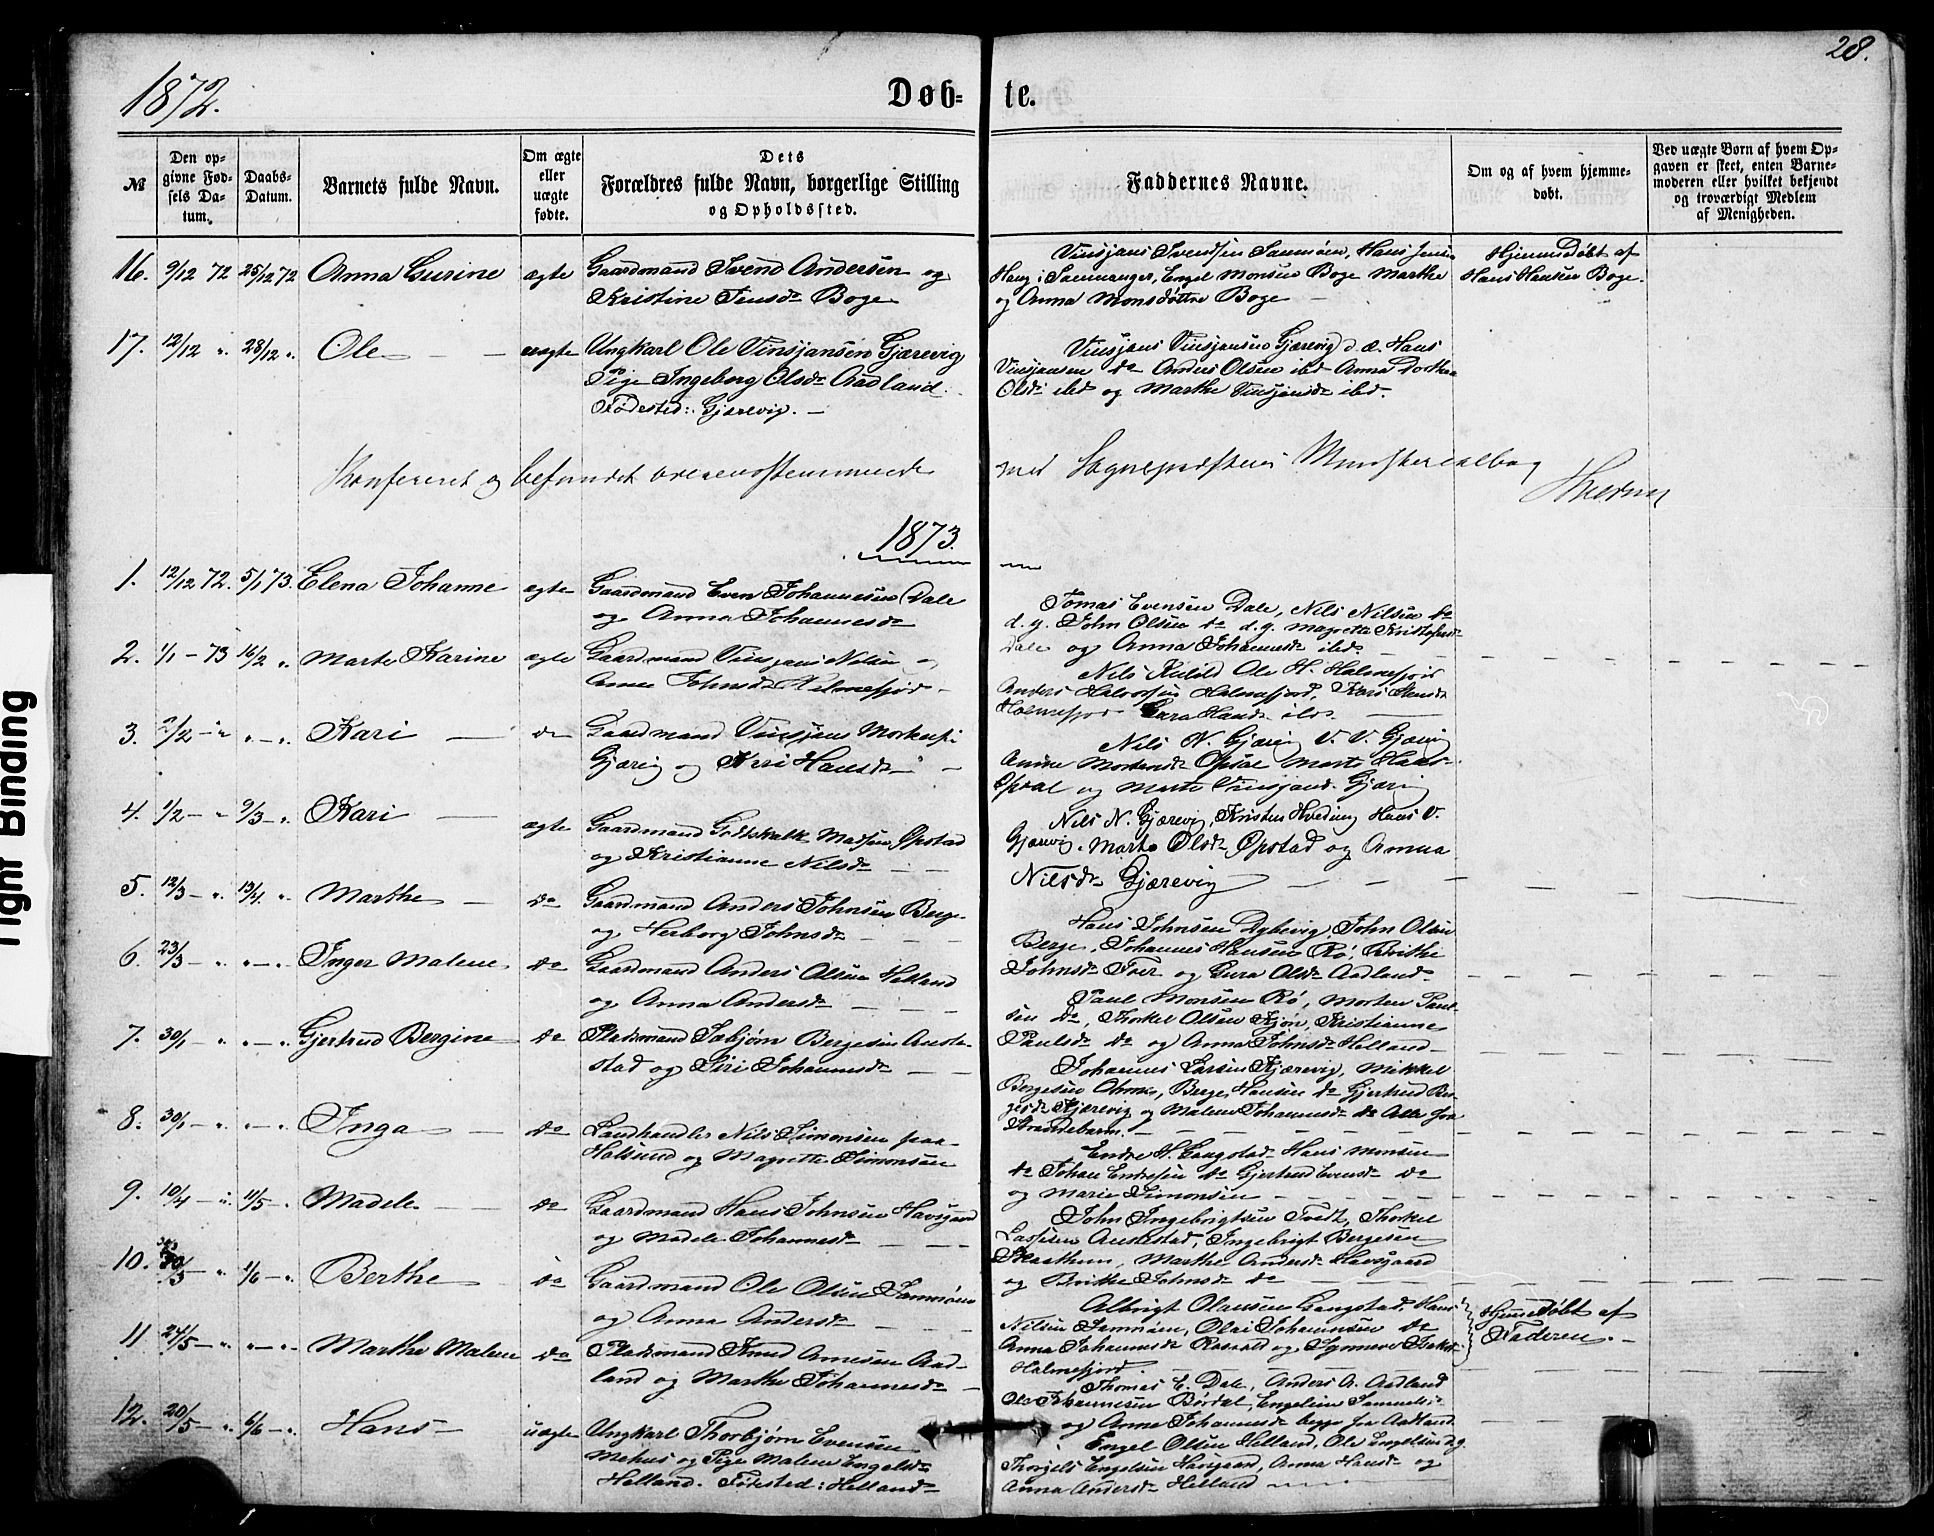 28.
1872.
Døb-
te.
№
Den op-
givne Fød-
sels Da-
tum.
Daabs-
Datum.
Barnets fulde Navn.
Om ægte
eller
uægte
fødte.
Dets
Forældres fulde Navn, borgerlige Stilling
og Opholdssted.
Faddernes Navne.
Om og af hvem hjemme-
døbt.
Ved uægte Børn af hvem Op-
gaven er skeet, enten Barne-
moderen eller hvilket bekjendt
og troværdigt Medlem
af Menigheden.
16. 9/12 72 25/12 72 Anna Lusine ægte Gaardmand Svend Andersen og
Kristine Jensdr Boge
Vinsjans Svendsen Samnøen, Hans Jensen
Haug i Samnanger, Engel Monsen Boge Marthe
og Anna Monsdøttre Boge
Hjemmedøbt af
Hans Hansen Boge.
17. 12/12 " 28/12 " Ole uægte Ungkarl Ole Vinsjansen Gjærevig
Pige Ingeborg Olsdr Aadland.
Fødested: Gjærevig.
Vinsjans Vinsjansen Gjærevig d. æ. Hans
Vinsjansen do Anders Olsen ibd Anna Dorthea
Olsdr ibd og Marthe Vinsjansdr ibd.
Konfereret og befundet overensstemmende
med Sognepræstens Ministerialbog
1873.
1. 12/12 72. 5/1 73. Elena Johanne ægte Gaardmand Even Johannesen Dale
og Anna Johannesdr
Tomas Evensen Dale, Nils Nilsen do
d. y. John Olsen do d. y. Magrete Kristofersdr
Dale og Anna Johannesdr ibd.
2. 1/1 - 73 16/2 " Marte Karine ægte Gaardmand Vinsjans Nilsen og
Anne Johnsdr Holmefjor
Nils Ole H. Holmefjor
Anders Halvorsen Holmefjord, Kari
Holmefjor Hansdr ibd.
3. 2/2 - " " - " Kari do Gaardmand Vinsjans
Gjærvig og Kari Hansdr
Nils N. Gjærvig V. V. Gjærvig
Anna Mortensdr Opstad Marte Hansdr
Opstad og Marte Vinsjansdr Gjærvig
4. 1/2 - " 9/3 - " Kari ægte Gaardmand Godskalk Madsen Opstad
og Kristianne Nilsdr
Nils N. Gjærevig, Kristen Hveding Hans V.
Gjærevig. Marte Olsdr Opstad og Anna
Nilsdr Gjærevig
5. 12/3 - " 13/4 " Marthe do Gaardmand Anders Johnsen Berge
og Herborg Johnsdr
Hans Johnsen Dybevig, John Olsen
Berge, Johannes Hansen Rø, Brithe
Johnsdr Træ og Gura Olsdr Aadland
6. 23/3 - " " - " Inger Malene do Gaardmand Anders Olsen Helland
og Anna Andersdr
Paul Monsen Rø, Morten Paul-
sen do, Thorkel Olsen Kjøn, Kristianne
Paulsdr do og Anna Johnsdr Helland
7. 30/1 - " " - " Gjertrud Bergine do Pladsmand Isbjørn Bergesen Auste-
stad og Siri Johannesdr
Johannes Larsen Kjærevig, Mikkel
Bergesen Berge Hansen do Gjertrud Ber-
gesdr Kjærevig og Malene Johannesdr do Alle fra
Strandebarm.
8. 30/1 - " " - " Inga do Landhandler Nils Simonsen paa
Holsund og Magrethe Simonsen
Endre H. Laugstad Hans Monsen
do Johan Endresen do Gjertrud Evensdr do
og Marie Simonsen
9. 10/4 - " 11/5 - " Madele do Gaardmand Hans Johnsen Havsgaard
og Madele Johannesdr
John Ingebrigtsen Tvedt, Thorkel
Lassesen Austestad, Ingebrigt Bergesen
Skarthun, Marthe Andersdr Havsgaard
og Brithe Johnsdr do
10. 30/3 - " 1/6 - " Berthe do Gaardmand Ole Olsen Samnøen
og Anna Andersdr
Albrigt Olausen Langstad, Hans
Nilsen Samnøen, Olai Johannesen do
Anna Johannesdr og Synneve
Holmefjord.
Hjemmedøbt af
Faderen.
11 24/5 - " " - " Marthe Malene do Pladsmand Knud Arnesen Aad-
land og Marthe Johannesdr
Thomas E. Dale, Anders A. Aadland
Ole Johannesen Børdal, Engelina Samuelsdr
og Anna Johannesdr begge fra Aadland
12. 20/5 - " 6/6 - " Hans uægte Ungkarl Thorbjørn Evensen
Mehus og Pige Malene Engelsdr
Helland. Fødested: Helland
Engel Olsen Helland, Ole Engelsen d. y.
Thorgils Engelsen Havsgaard, Anna Hansdr og
Anna Andersdr Helland
Tight Binding